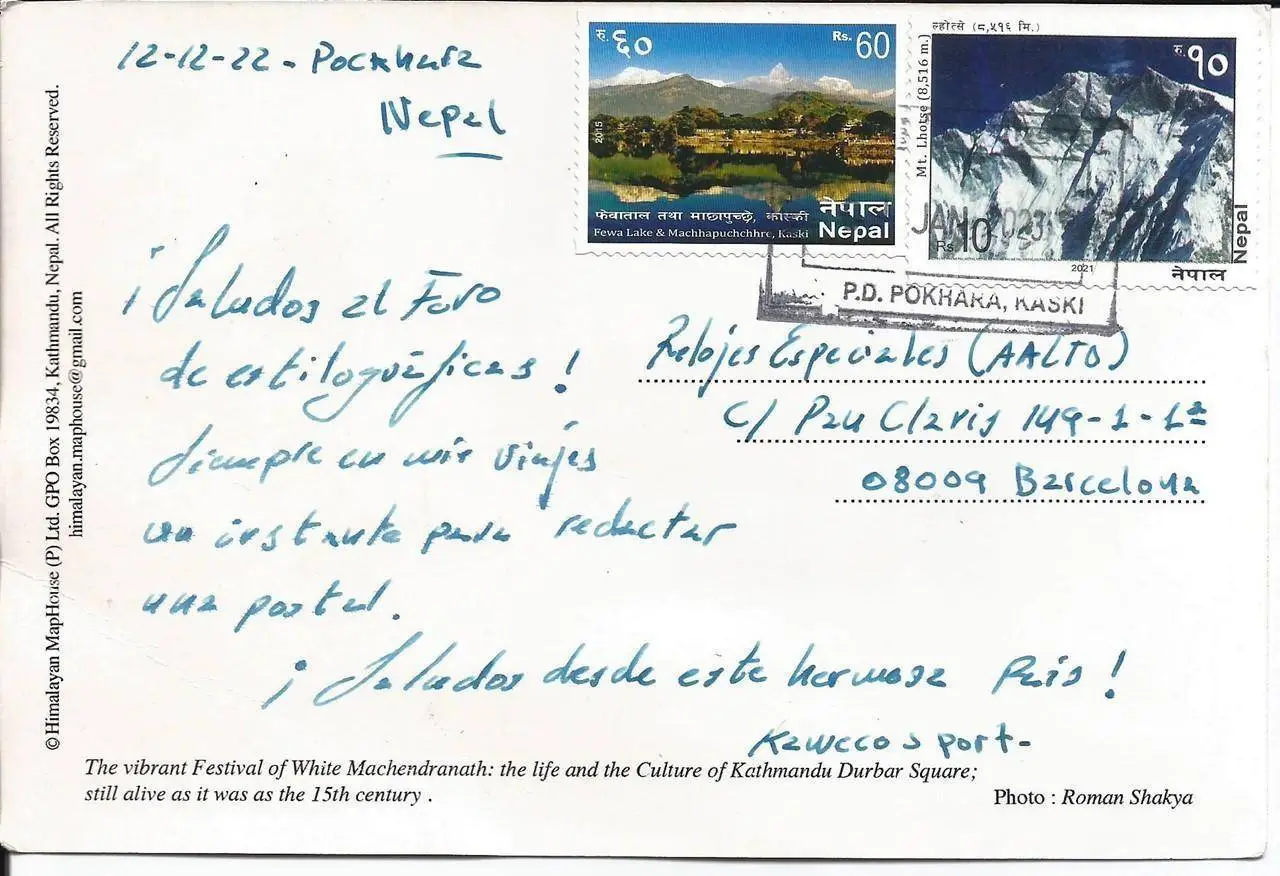 12-12-22 - Pockhara
Nepal
¡Saludos al Foro
de estilográficas!
Siempre en mis viajes
un instante para redactar
una postal.
¡Saludos desde este hermosa Pais!
Kaweco Sport-
रु.६०
Rs. 60
2015
फेवाताल तथा माछापुच्छ्रे, कास्की
Fewa Lake & Machhapuchchhre, Kaski
नेपाल
Nepal
ल्होत्से (८,५१६ मि.)
Mt. Lhotse (8,516 m.)
रु.१०
Rs.10
2021
नेपाल
Nepal
JAN 2023
P.D. POKHARA, KASKI
Relojes Especiales (AALTO)
C/ Pau Claris 149-1-1ª
08009 Barcelona
©Himalayan MapHouse (P) Ltd. GPO Box 19834, Kathmandu, Nepal. All Rights Reserved.
himalayan.maphouse@gmail.com
The vibrant Festival of White Machendranath: the life and the Culture of Kathmandu Durbar Square;
still alive as it was as the 15th century .
Photo : Roman Shakya